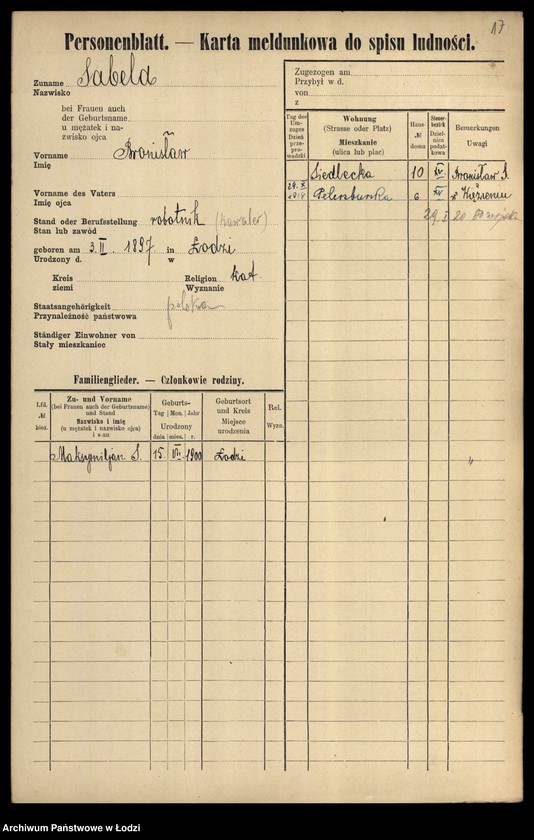 17
Personenblatt. — Karta meldunkowa do spisu ludności.
Zuname Sabela
Nazwisko
bei Frauen auch
der Geburtsname
u mężatek i na-
zwisko ojca
Vorname Bronisław
Imię
Vorname des Vaters
Imię ojca
Stand oder Berufsstellung robotnik (kawaler)
Stan lub zawód
geboren am 3. II. 1897 in Łodzi
Urodzony d. w
Kreis Religion kat.
ziemi Wyznanie
Staatsangehörigkeit polska
Przynależność państwowa
Ständiger Einwohner von
Stały mieszkaniec
Zugezogen am
Przybył w d.
von
z
Tag des Um-zuges Dzień prze-prowadzki
Wohnung (Strasse oder Platz) Mieszkanie (ulica lub plac)
Haus- № domu
Steuer-bezirk Dziel-nica podat-kowa
Bemerkungen Uwagi
Siedlecka 10 XV Bronisław S.
29. X 1918 Petersburska 6 XV z Więzieniu
29. I 20
Familienglieder. — Członkowie rodziny.
Lfd. № biez.
Zu- und Vorname (bei Frauen auch der Geburtsname) und Stand Nazwisko i imię (u mężatek i nazwisko ojca) i stan
Geburts- Tag Mon. Jahr Urodzony dnia mies. r.
Geburtsort und Kreis Miejsce urodzenia
Rel. Wyzn.
Maksymiljan S. 15. 1900 Łodzi "
Archiwum Państwowe w Łodzi